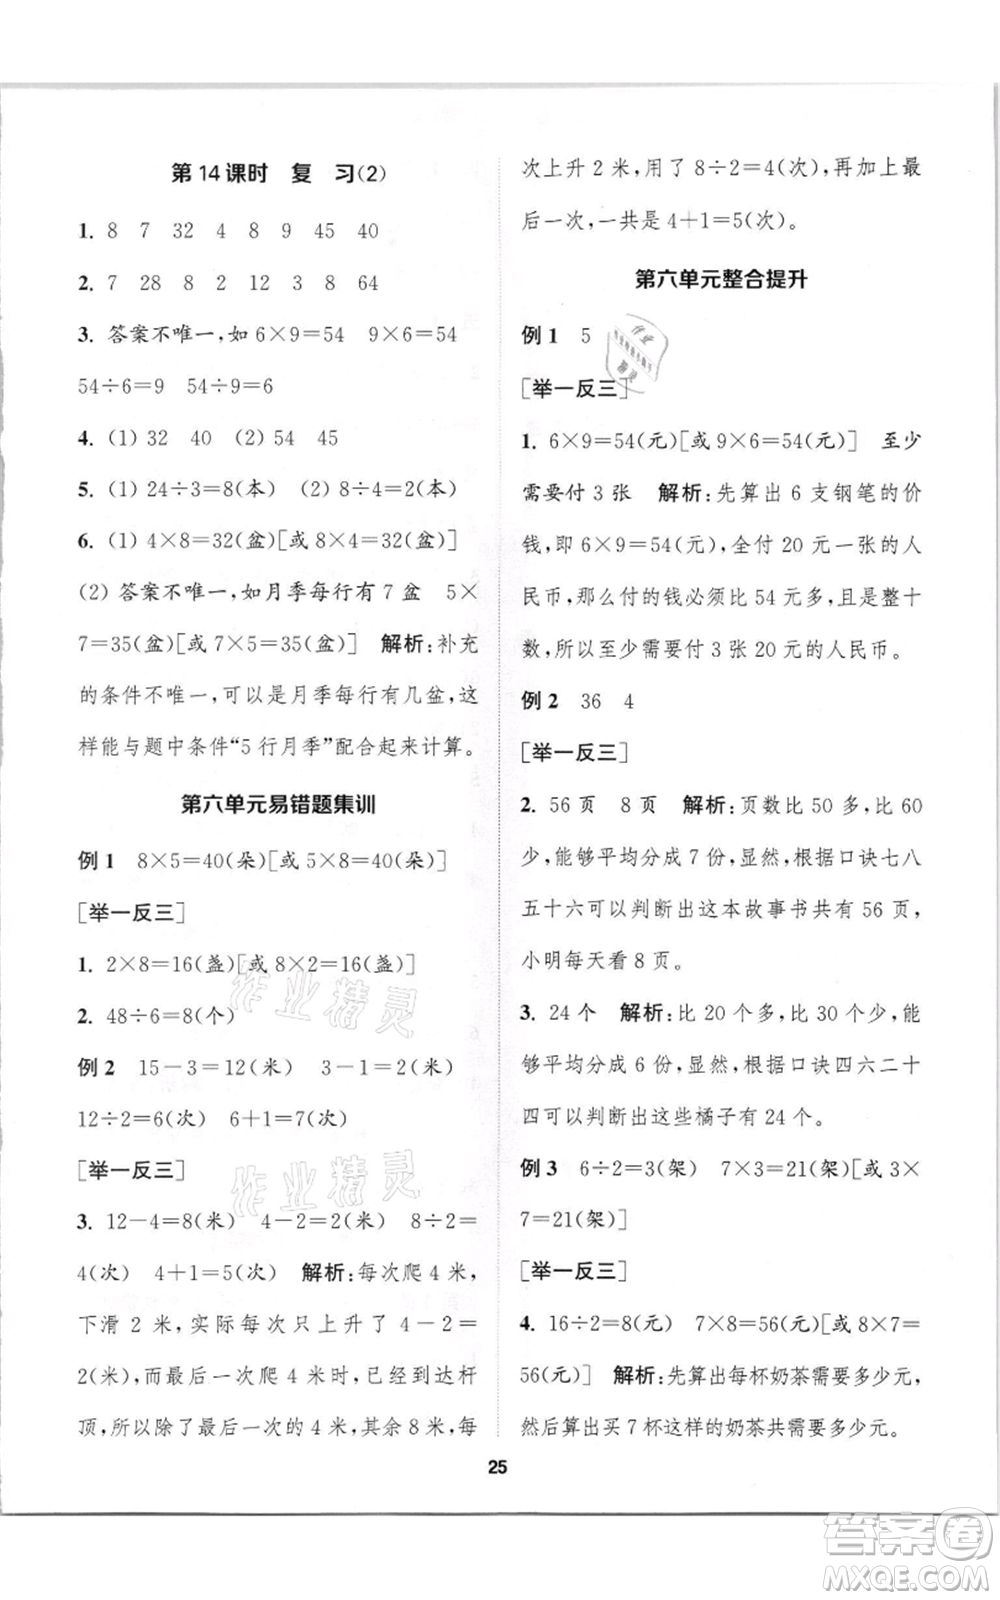 第14课时　复　习(2)
1. 8　7　32　4　8　9　45　40
2. 7　28　8　2　12　3　8　64
3. 答案不唯一,如 6×9=54　9×6=54
54÷6=9　54÷9=6
4. (1) 32　40　(2) 54　45
5. (1) 24÷3=8(本)　(2) 8÷4=2(本)
6. (1) 4×8=32(盆)[或 8×4=32(盆)]
(2) 答案不唯一,如月季每行有 7 盆　5×
7=35(盆)[或 7×5=35(盆)]　解析:补充
的条件不唯一,可以是月季每行有几盆,这
样能与题中条件“5 行月季”配合起来计算。
第六单元易错题集训
例 1　8×5=40(朵)[或 5×8=40(朵)]
[举一反三]
1. 2×8=16(盏)[或 8×2=16(盏)]
2. 48÷6=8(个)
例 2　15-3=12(米)　3-1=2(米)
12÷2=6(次)　6+1=7(次)
[举一反三]
3. 12-4=8(米)　4-2=2(米)　8÷2=
4(次)　4+1=5(次)　解析:每次爬 4 米,
下滑 2 米,实际每次只上升了 4-2=
2(米),最后一次爬 4 米时,已经到达杆
顶,所以除了最后一次的 4 米,其余的米数,每
次上升 2 米,用了 8÷2=4(次),再加上最
后一次,一共是 4+1=5(次)。
第六单元整合提升
例 1　5
[举一反三]
1. 6×9=54(元)[或 9×6=54(元)]　至少
需要付 3 张　解析:先算出 6 支钢笔的价
钱,即 6×9=54(元),全付 20 元一张的人
民币,那么付的钱必须比 54 元多,且是整十
数,所以至少需要付 3 张 20 元的人民币。
例 2　36　4
[举一反三]
2. 56 页　8 页　解析:页数比 50 多,比 60
少,能够平均分成 7 份,显然,根据口诀七八
五十六可以判断出这本故事书共有 56 页,
小明每天看 8 页。
3. 24 个　解析:比 20 个多,比 30 个少,能
够平均分成 6 份,显然,根据口诀四六二十
四可以判断出这些橘子有 24 个。
例 3　6÷2=3(架)　7×3=21(架)[或 3×
7=21(架)]
[举一反三]
4. 16÷2=8(元)　7×8=56(元)[或 8×7=
56(元)]　解析:先算出每杯奶茶需要多少元,
然后算出买 7 杯这样的奶茶共需要多少元。
25
作业精灵
作业精灵
答案卷
MXQE.COM